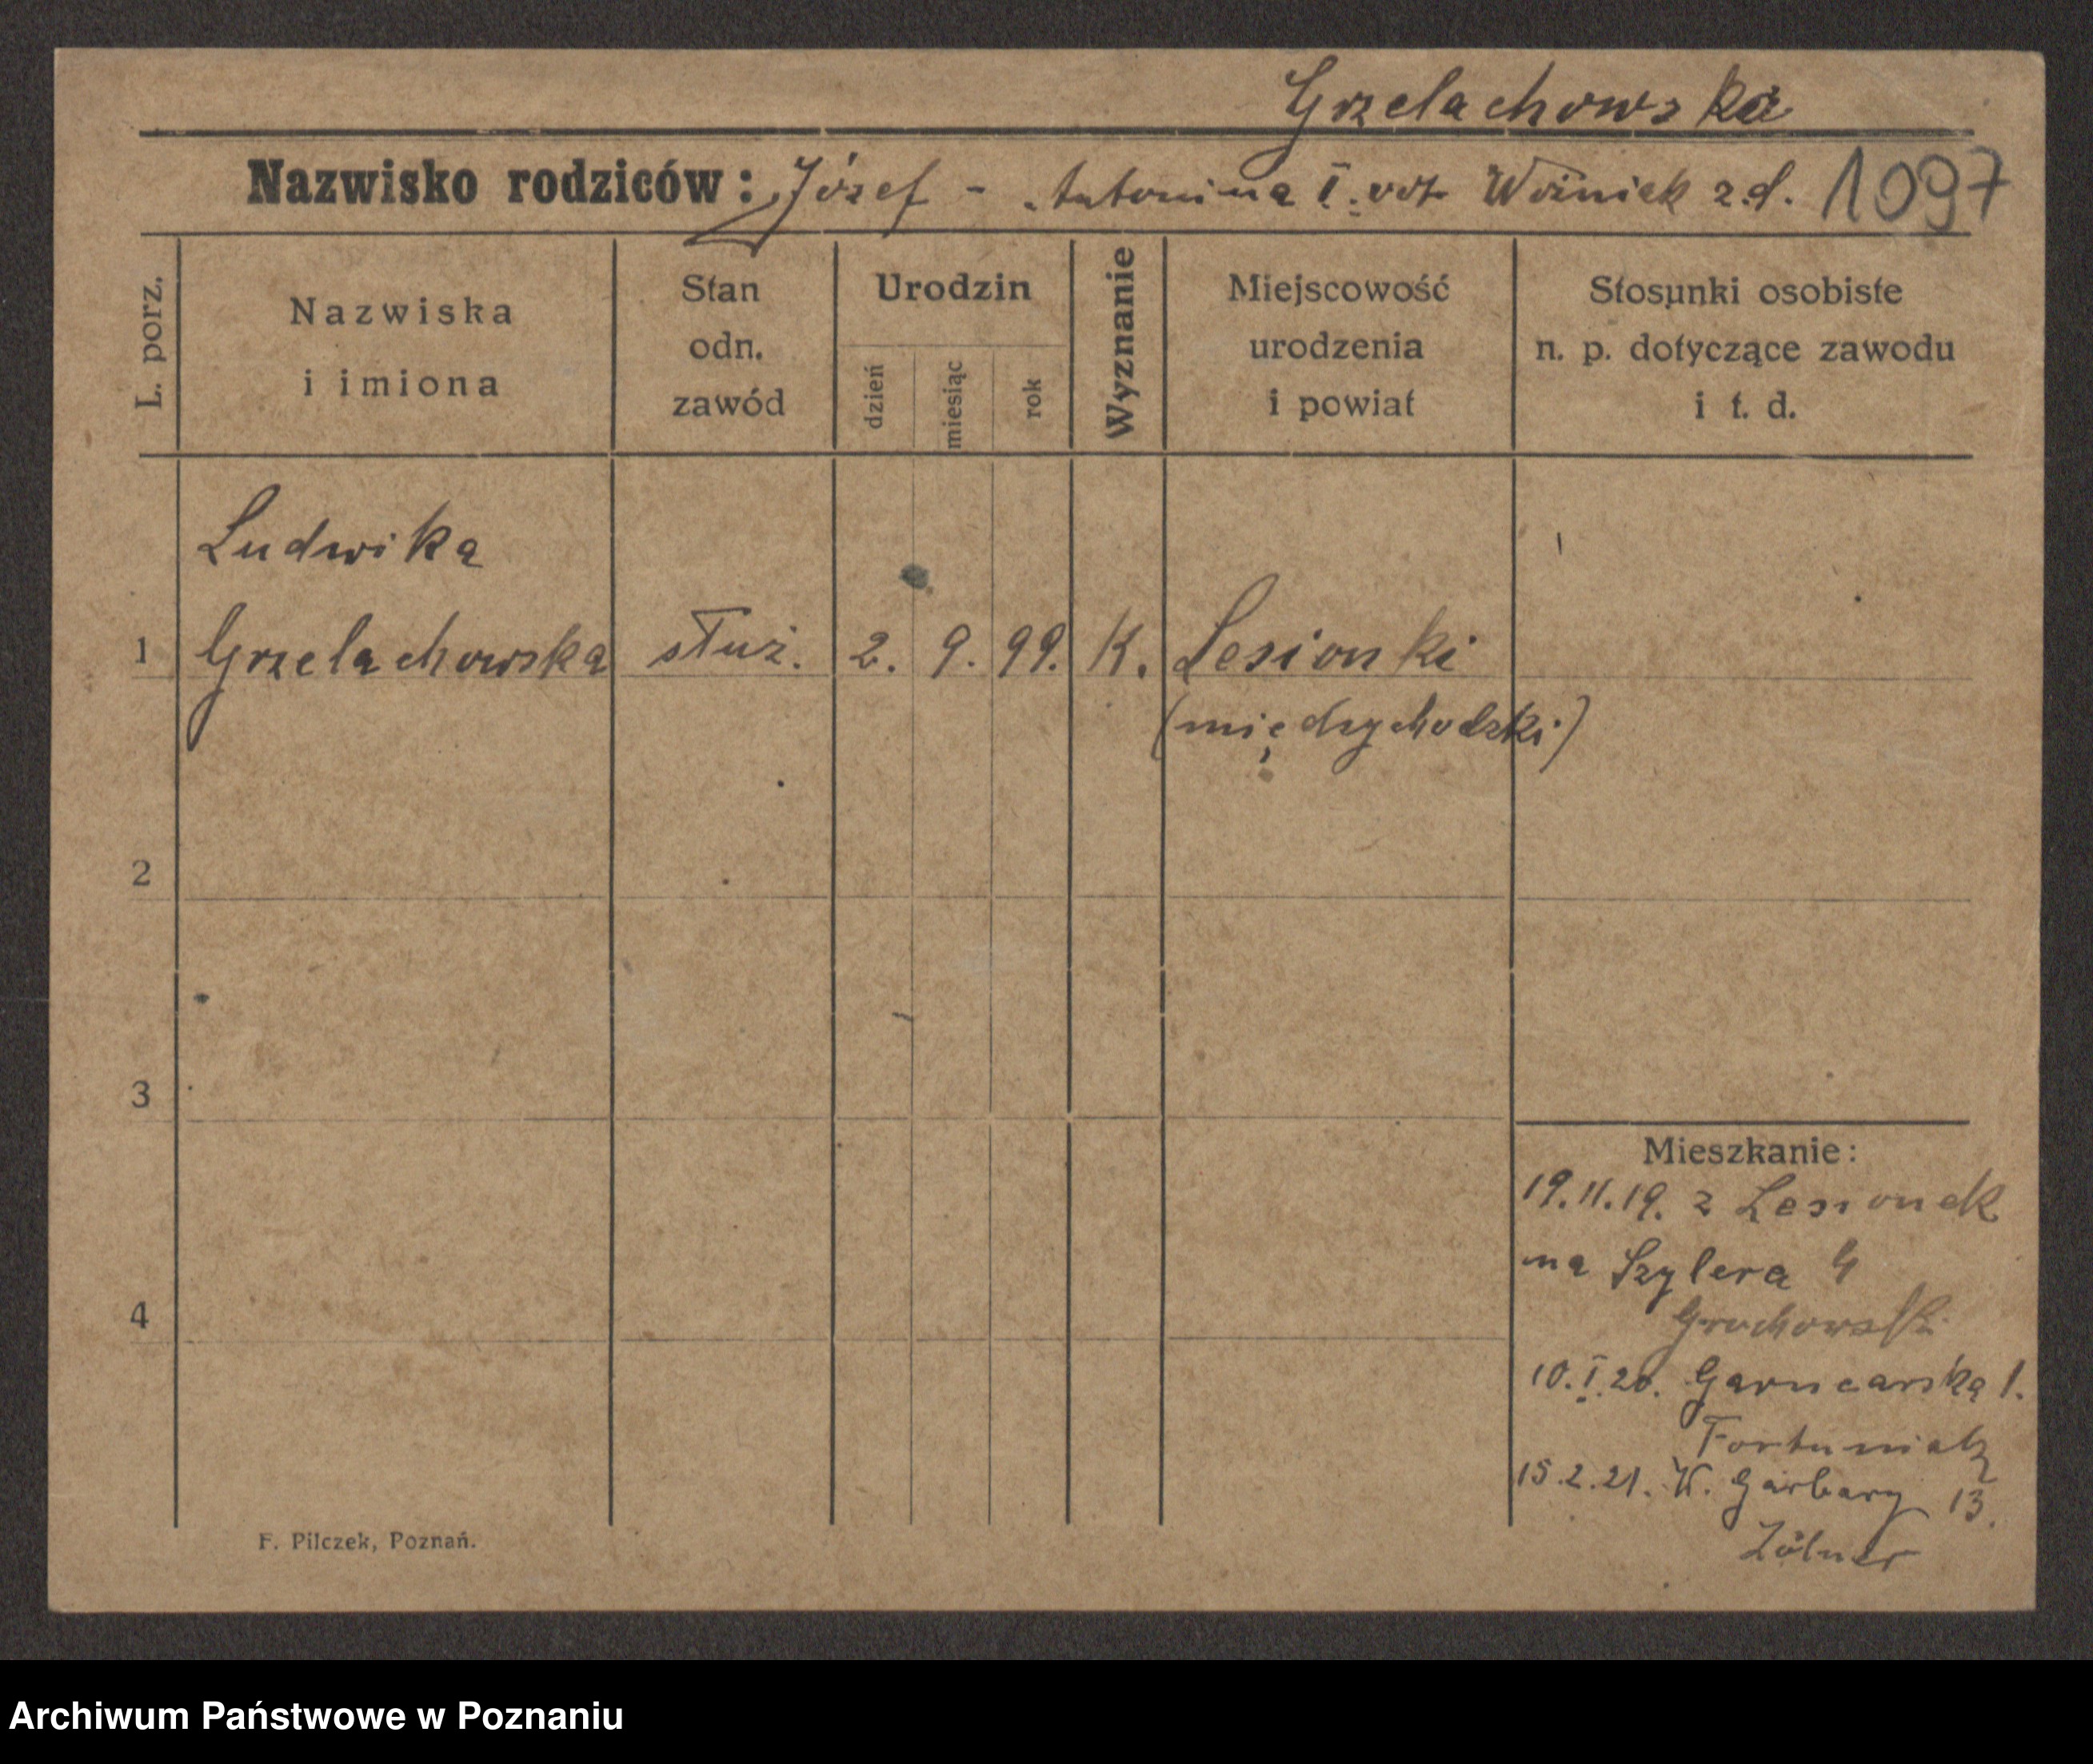 Grzelachowska
Nazwisko rodziców: Józef - Antonina I. vot Woźniak z.d. 1097
L. porz.
Nazwiska
i imiona
Stan
odn.
zawód
Urodzin
dzień
miesiąc
rok
Wyznanie
Miejscowość
urodzenia
i powiat
Stosunki osobiste
n. p. dotyczące zawodu
i t. d.
Ludwika
1 Grzelachowska służ. 2. 9. 99. K. Lesionki
(międzychodzki)
2
3
4
Mieszkanie:
19.11.19. z Lesionek
na Szylera 4
Grochowski
10.I.20. Garncarska 1.
Fortuniak
15.2.21. W. Garbary 13.
Zölner
F. Pilczek, Poznań.
Archiwum Państwowe w Poznaniu